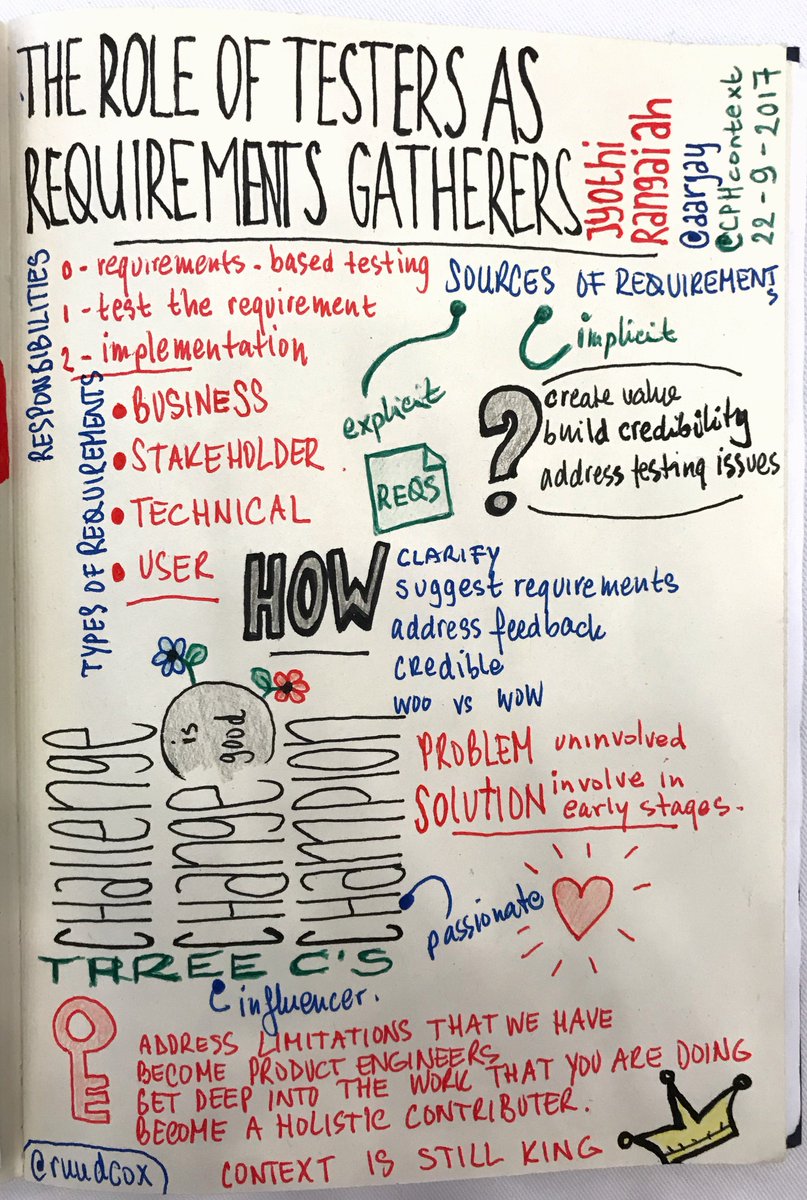 THE ROLE OF TESTERS AS
REQUIREMENTS GATHERERS
Jyothi
Rangaiah
@aarjay
@CPHcontext
22-9-2017
RESPONSIBILITIES
0 - requirements-based testing
1 - test the requirement
2 - implementation
SOURCES OF REQUIREMENTS
explicit
implicit
REQS
?
create value
build credibility
address testing issues
TYPES OF REQUIREMENTS
• BUSINESS
• STAKEHOLDER
• TECHNICAL
• USER
HOW
CLARIFY
suggest requirements
address feedback
credible
WOO vs WOW
CHallenge
CHange
is
good
CHampion
THREE C'S
PROBLEM uninvolved
SOLUTION involve in
early stages.
passionate
influencer.
ADDRESS LIMITATIONS THAT WE HAVE
BECOME PRODUCT ENGINEERS
GET DEEP INTO THE WORK THAT YOU ARE DOING
BECOME A HOLISTIC CONTRIBUTER.
CONTEXT IS STILL KING
@ruudcox